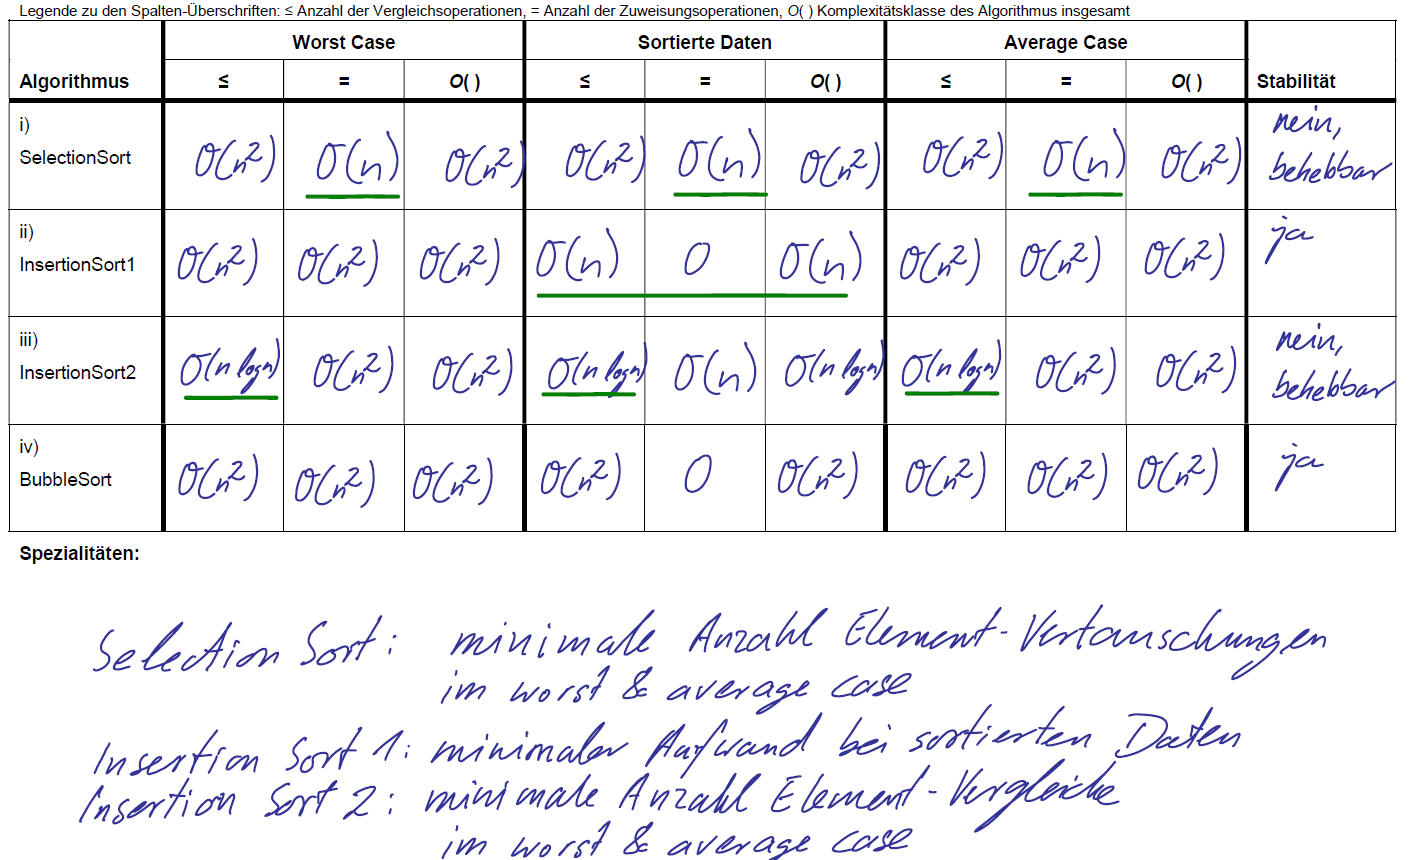 Legende zu den Spalten-Überschriften: ≤ Anzahl der Vergleichsoperationen, = Anzahl der Zuweisungsoperationen, O( ) Komplexitätsklasse des Algorithmus insgesamt
Worst Case Sortierte Daten Average Case
Algorithmus ≤ = O( ) ≤ = O( ) ≤ = O( ) Stabilität
i) nein,
SelectionSort O(n²) O(n) O(n²) O(n²) O(n) O(n²) O(n²) O(n) O(n²) behebbar
ii) ja
InsertionSort1 O(n²) O(n²) O(n²) O(n) 0 O(n) O(n²) O(n²) O(n²)
iii) nein,
InsertionSort2 O(n logn) O(n²) O(n²) O(n logn) O(n) O(n logn) O(n logn) O(n²) O(n²) behebbar
iv) ja
BubbleSort O(n²) O(n²) O(n²) O(n²) 0 O(n²) O(n²) O(n²) O(n²)
Spezialitäten:
Selection Sort: minimale Anzahl Element-Vertauschungen
im worst & average case
Insertion Sort 1: minimaler Aufwand bei sortierten Daten
Insertion Sort 2: minimale Anzahl Element-Vergleiche
im worst & average case